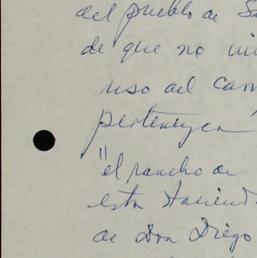 del pueblo de
de que no
uso del
pertenezca
"el rancho de
esta Haciend
de Don Diego